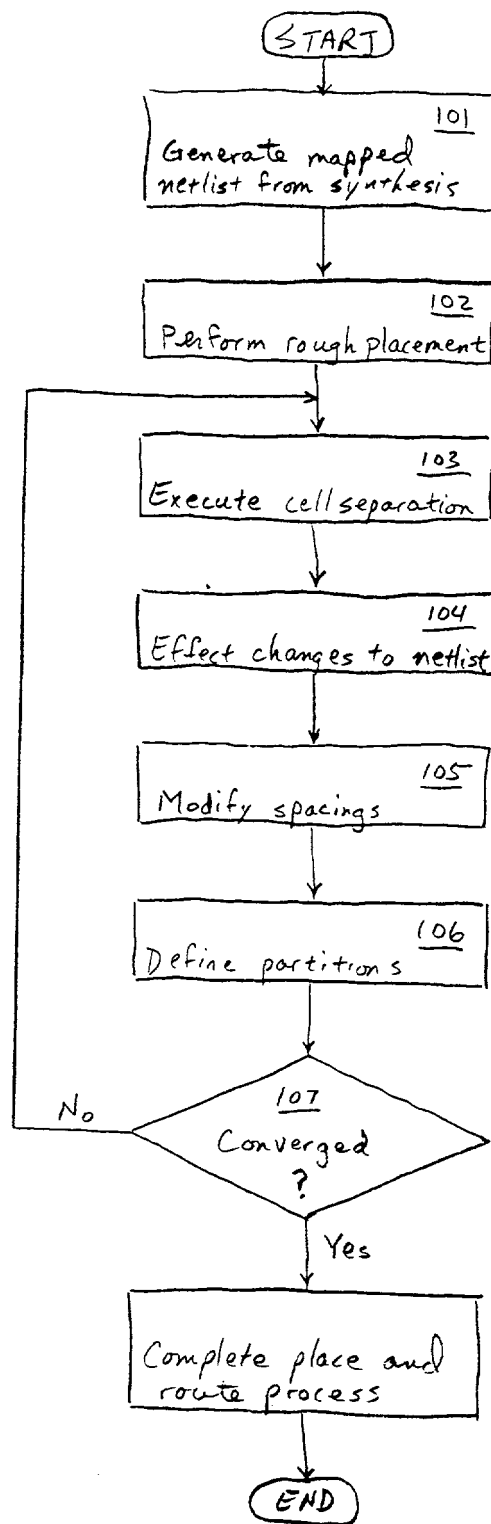 START
101
Generate mapped
netlist from synthesis
102
Perform rough placement
103
Execute cell separation
104
Effect changes to netlist
105
Modify spacings
106
Define partitions
107
No
Converged
?
Yes
Complete place and
route process
END